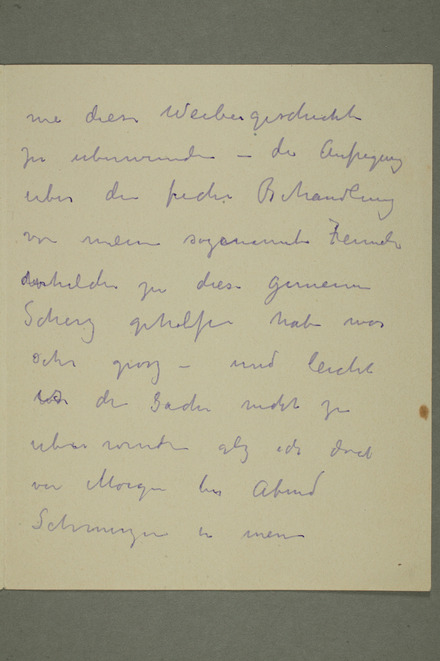 nie diese Weibergeschichte
zu überwinden – die Aufregung
über die freche Behandlung
von meinen sogenannte Freunde
zu diese gemeinen
Scherz geholfen habe war
sehr gross – und leicht
die Sache nicht zu
überwinden als ich dort
von Morgen bis Abend
Schmerzen in meine